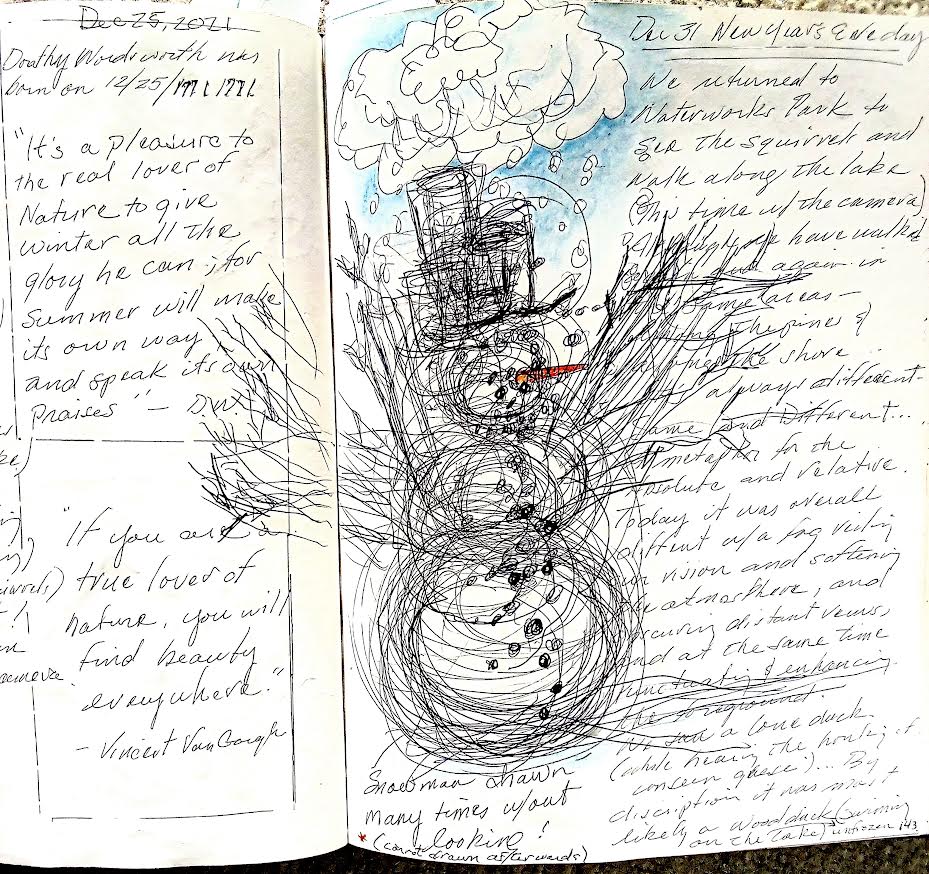 Dec 25, 2021
Dorothy Wordsworth was
born on 12/25/1771 1771
"It's a pleasure to
the real lover of
Nature to give
winter all the
glory he can, for
Summer will make
its own way
and speak its own
Praises" - D.W.
"If you are a
true lover of
nature, you will
find beauty
everywhere."
- Vincent Van Gough
Snowman drawn
many times w/out
looking!
* (carrot drawn afterwards)
Dec 31 New Years Eve day
We returned to
Waterworks Park to
See the squirrels and
walk along the lake
(this time w/ the camera)
have walked
again in
Same areas -
along the pines &
the shore
always different -
Same and Different...
metaphor for the
Absolute and relative.
Today it was overall
different w/ a fog
our vision and softening
the atmosphere, and
obscuring distant views,
and at the same time
punctuating & enhancing
the foreground.
We saw a lone duck
(while hearing the honking of
unseen geese)... By
discription it was most
likely a wood duck (swimming
on the lake) unfrozen 143